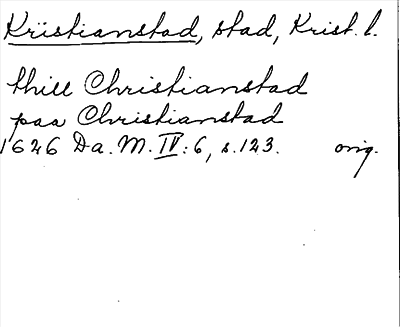 Kristianstad, stad, Krist. l.
thill Christianstad
paa Christianstad
1626 Da. M. IV: 6, s. 123. orig.